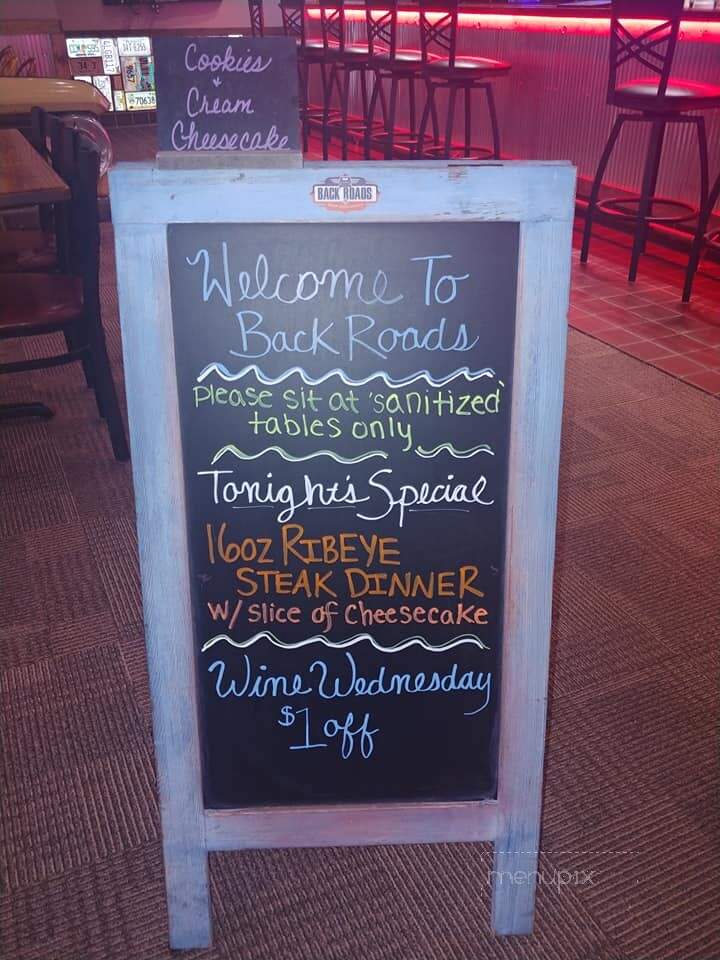 Cookies
+
Cream
Cheesecake
BACK ROADS
Welcome To
Back Roads
Please sit at 'sanitized'
tables only
Tonight's Special
16oz RIBEYE
STEAK DINNER
w/ slice of Cheesecake
Wine Wednesday
$1 off
menupix